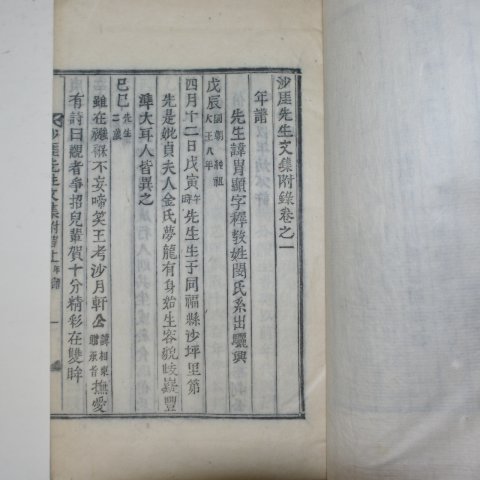 沙厓先生文集附錄卷之一
年譜
先生諱胄顯字穉敎姓閔氏系出驪興
戊辰 國朝純祖大王八年
四月十二日戊寅 午時 先生生于同福縣沙坪里第
先是妣貞夫人金氏夢龍有身始生容貌岐嶷豐
準大耳人皆異之
己巳 先生二歲
雖在襁褓不妄啼笑王考沙月軒公 諱相東贈承旨 撫愛
有詩曰觀者爭招兒輩賀十分精彩在雙眸
沙厓先生文集附錄上 年譜 一